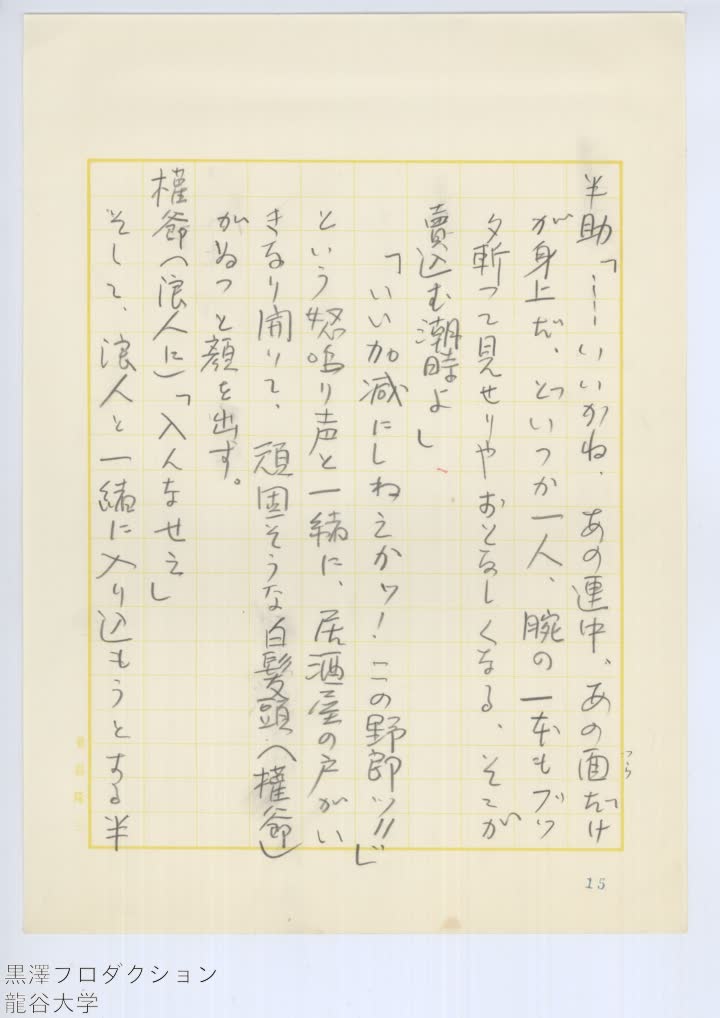 半助「……いいかね、あの連中、あの面だけ
つら
が身上だ、どいつか一人、腕の一本もブッ
タ斬って見せりやおとなしくなる、そこが
賣込む潮時よ」
「いい加減にしねえかッ！この野郎ッ‼」
という怒鳴り声と一緒に、居酒屋の戸がい
きなり開いて、頑固そうな白髪頭（権爺）
がぬっと顔を出す。
権爺（浪人に）「入んなせえ」
そして、浪人と一緒に入り込もうとする半
15
黒澤プロダクション
龍谷大学